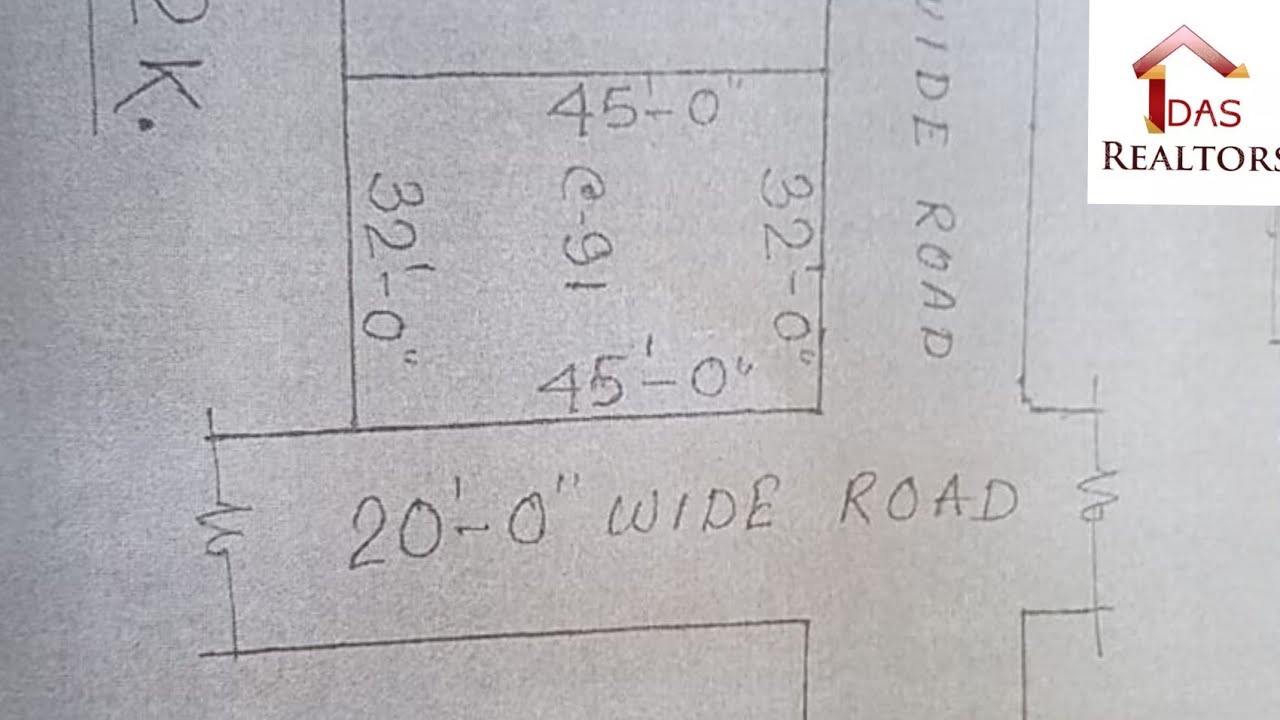 2 K.
WIDE ROAD
DAS
REALTORS
45'-0"
32'-0"
C-91
32'-0"
45'-0"
20'-0" WIDE ROAD